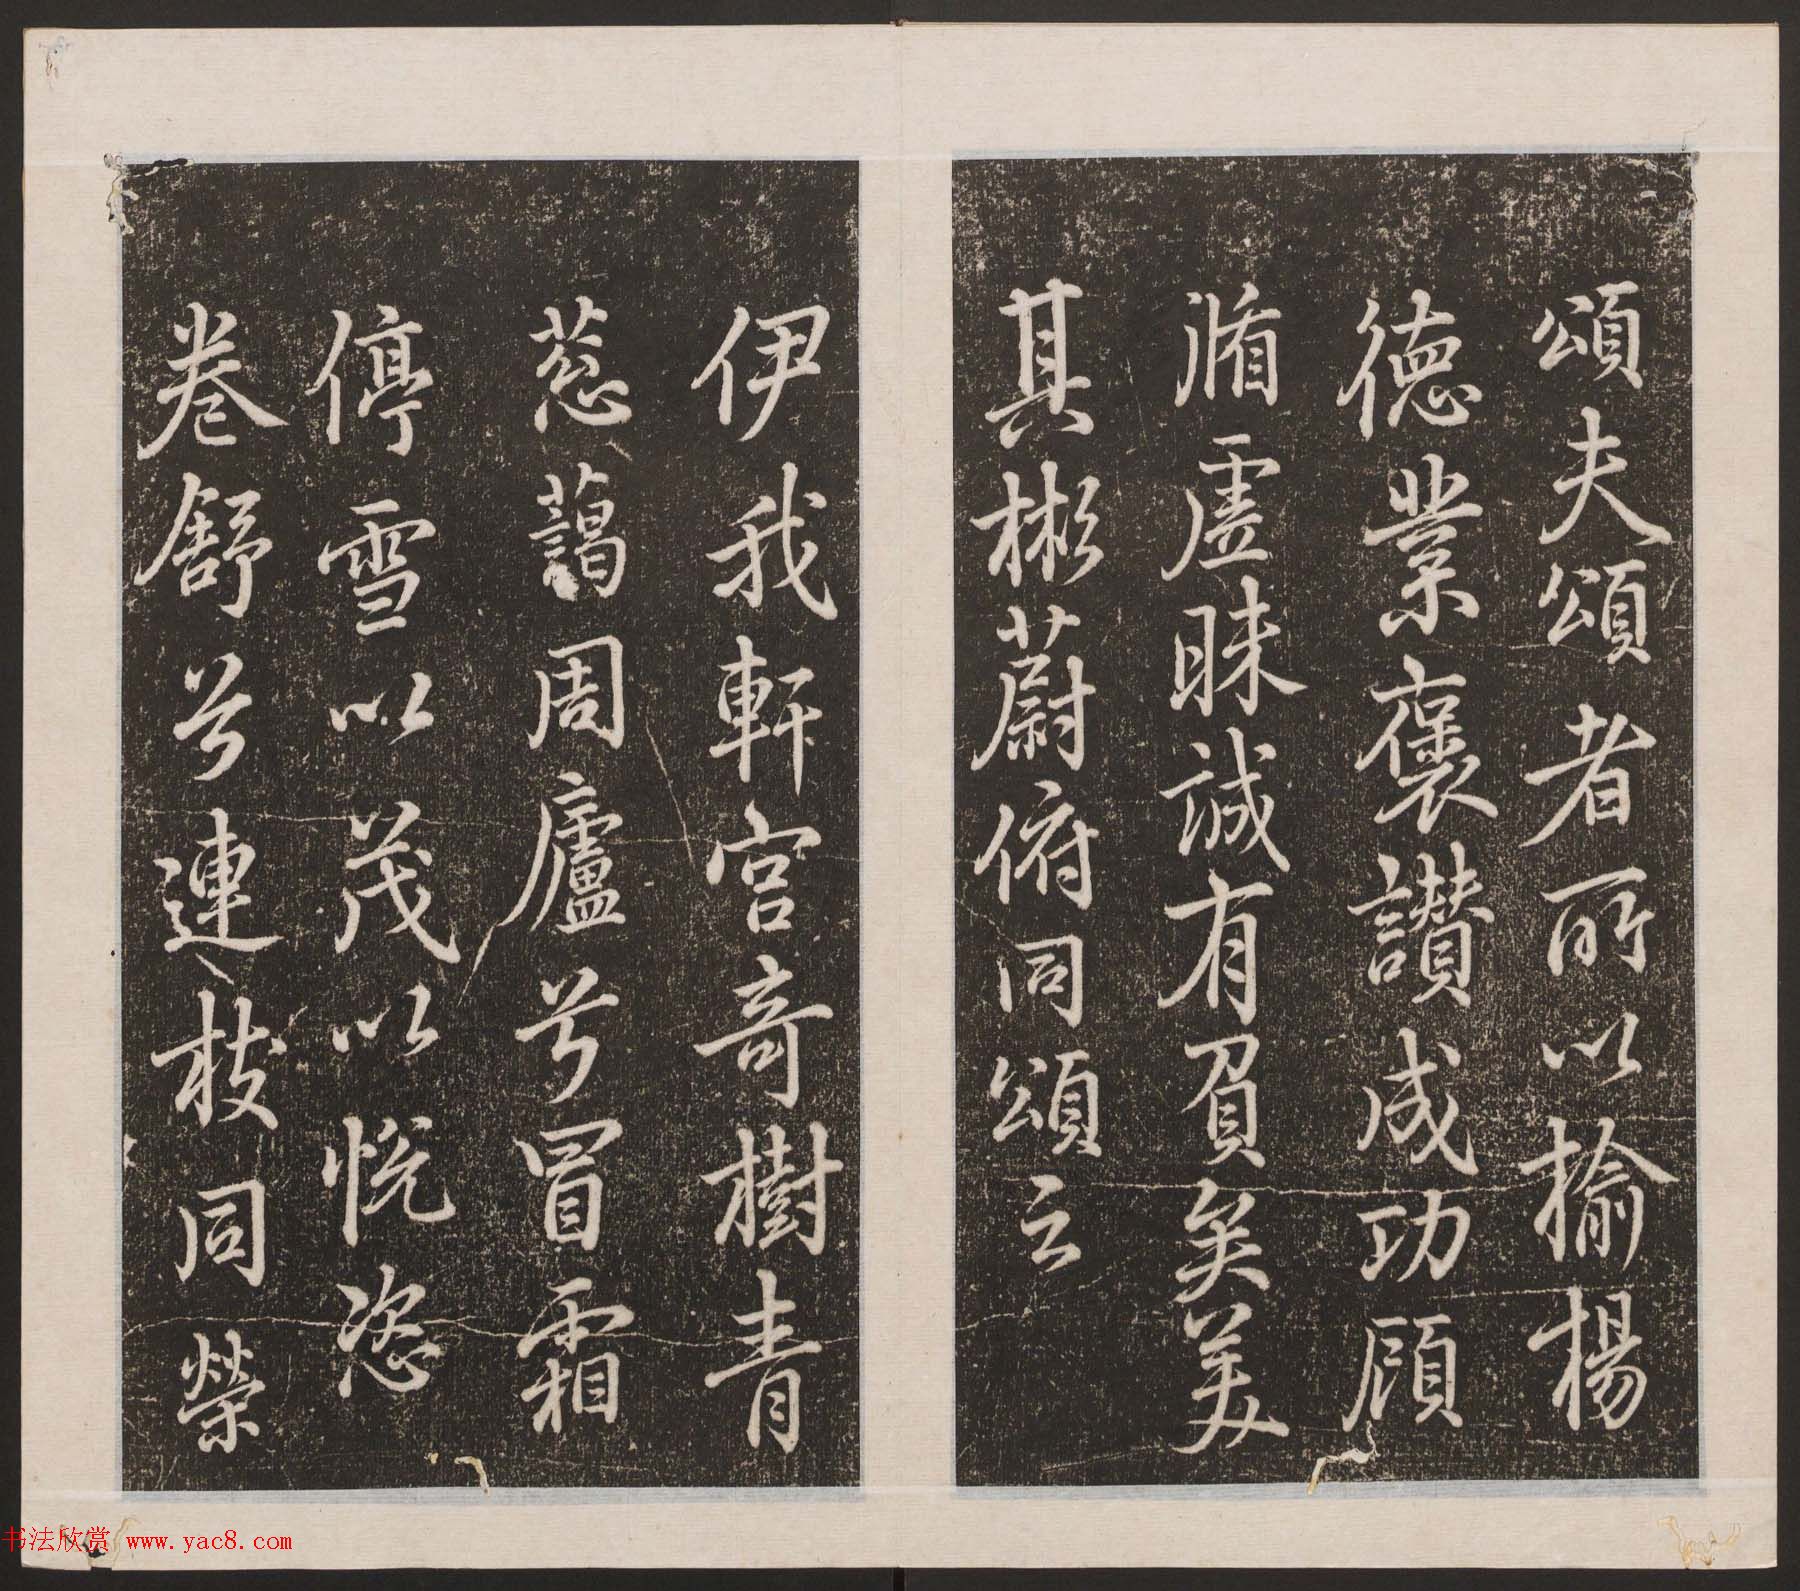 頌夫頌者所以揄楊
德業褒讃成功顧
循虛昧誠有負矣美
其彬蔚俯同頌云
伊我軒宮奇樹青
葱藹周廬兮冒霜
停雪以茂以悅恣
卷舒兮連枝同榮
书法欣赏 www.yac8.com